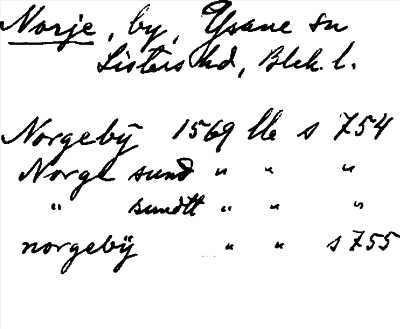 Norje, by, Ysane sn
Listers hd, Blek. l.
Norgebÿ 1569 s 754
Norge sund " " "
" sundtt " " "
norgebÿ " " s 755